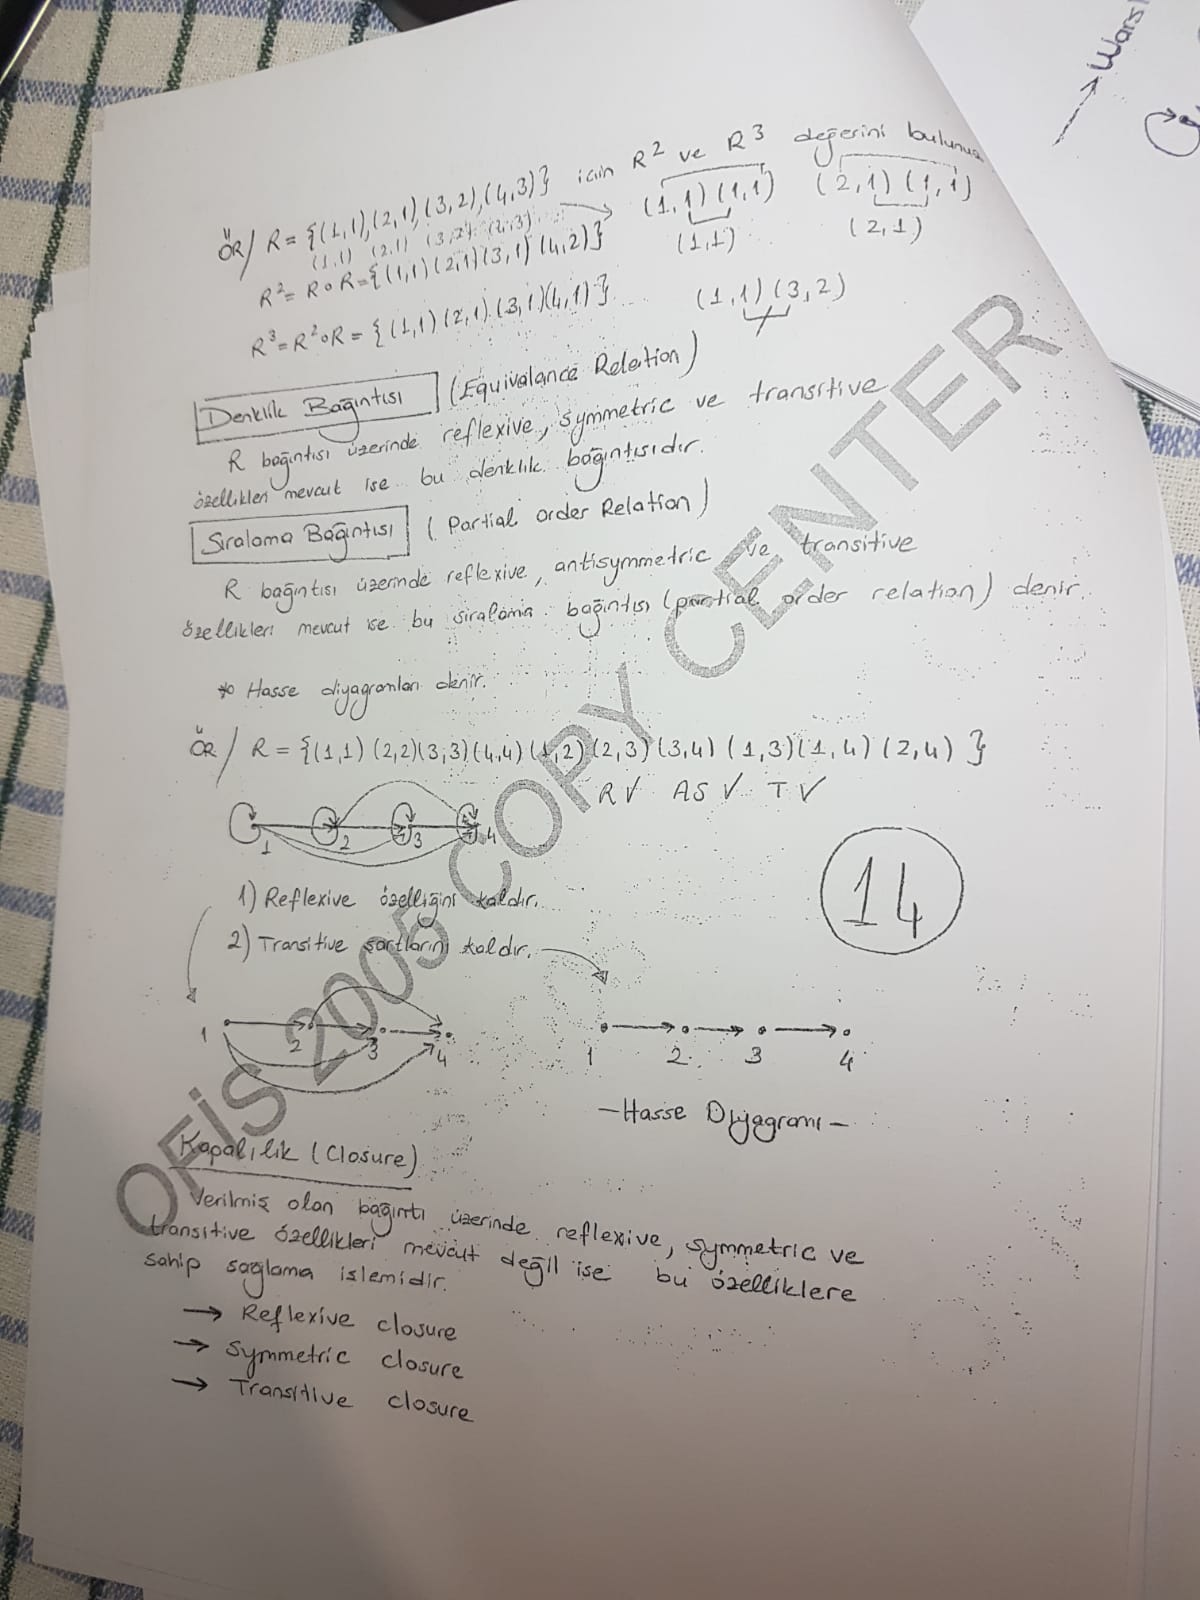 ÖR/ R = {(1,1),(2,1),(3,2),(4,3)} icin R² ve R³ değerini bulunuz
(1,1) (2,1) (3,2) (4,3)
(1,1) (1,1) (2,1) (1,1)
(1,1) (2,1)
R² = R∘R = {(1,1) (2,1) (3,1) (4,2)}
R³ = R²∘R = {(1,1) (2,1) (3,1) (4,1)}
(1,1) (3,2)
Denklik Bağıntısı (Equivalance Relation)
R bağıntısı üzerinde reflexive, symmetric ve transitive
özellikleri mevcut ise bu denklik bağıntısıdır.
Sıralama Bağıntısı (Partial order Relation)
R bağıntısı üzerinde reflexive, antisymmetric ve transitive
özellikleri mevcut ise bu sıralama bağıntısı (partial order relation) denir.
* Hasse diyagramları denir.
ÖR/ R = {(1,1) (2,2) (3,3) (4,4) (1,2) (2,3) (3,4) (1,3) (1,4) (2,4) }
R✓ AS✓ T✓
1 2 3 4
14
1) Reflexive özelliğini kaldır.
2) Transitive şartlarını kaldır.
1 2 3 4
1 2 3 4
-Hasse Diyagramı-
Kapalılık (Closure)
Verilmiş olan bağıntı üzerinde reflexive, symmetric ve
transitive özellikleri mevcut değil ise bu özelliklere
sahip sağlama işlemidir.
→ Reflexive closure
→ Symmetric closure
→ Transitive closure
OFİS 2005 COPY CENTER